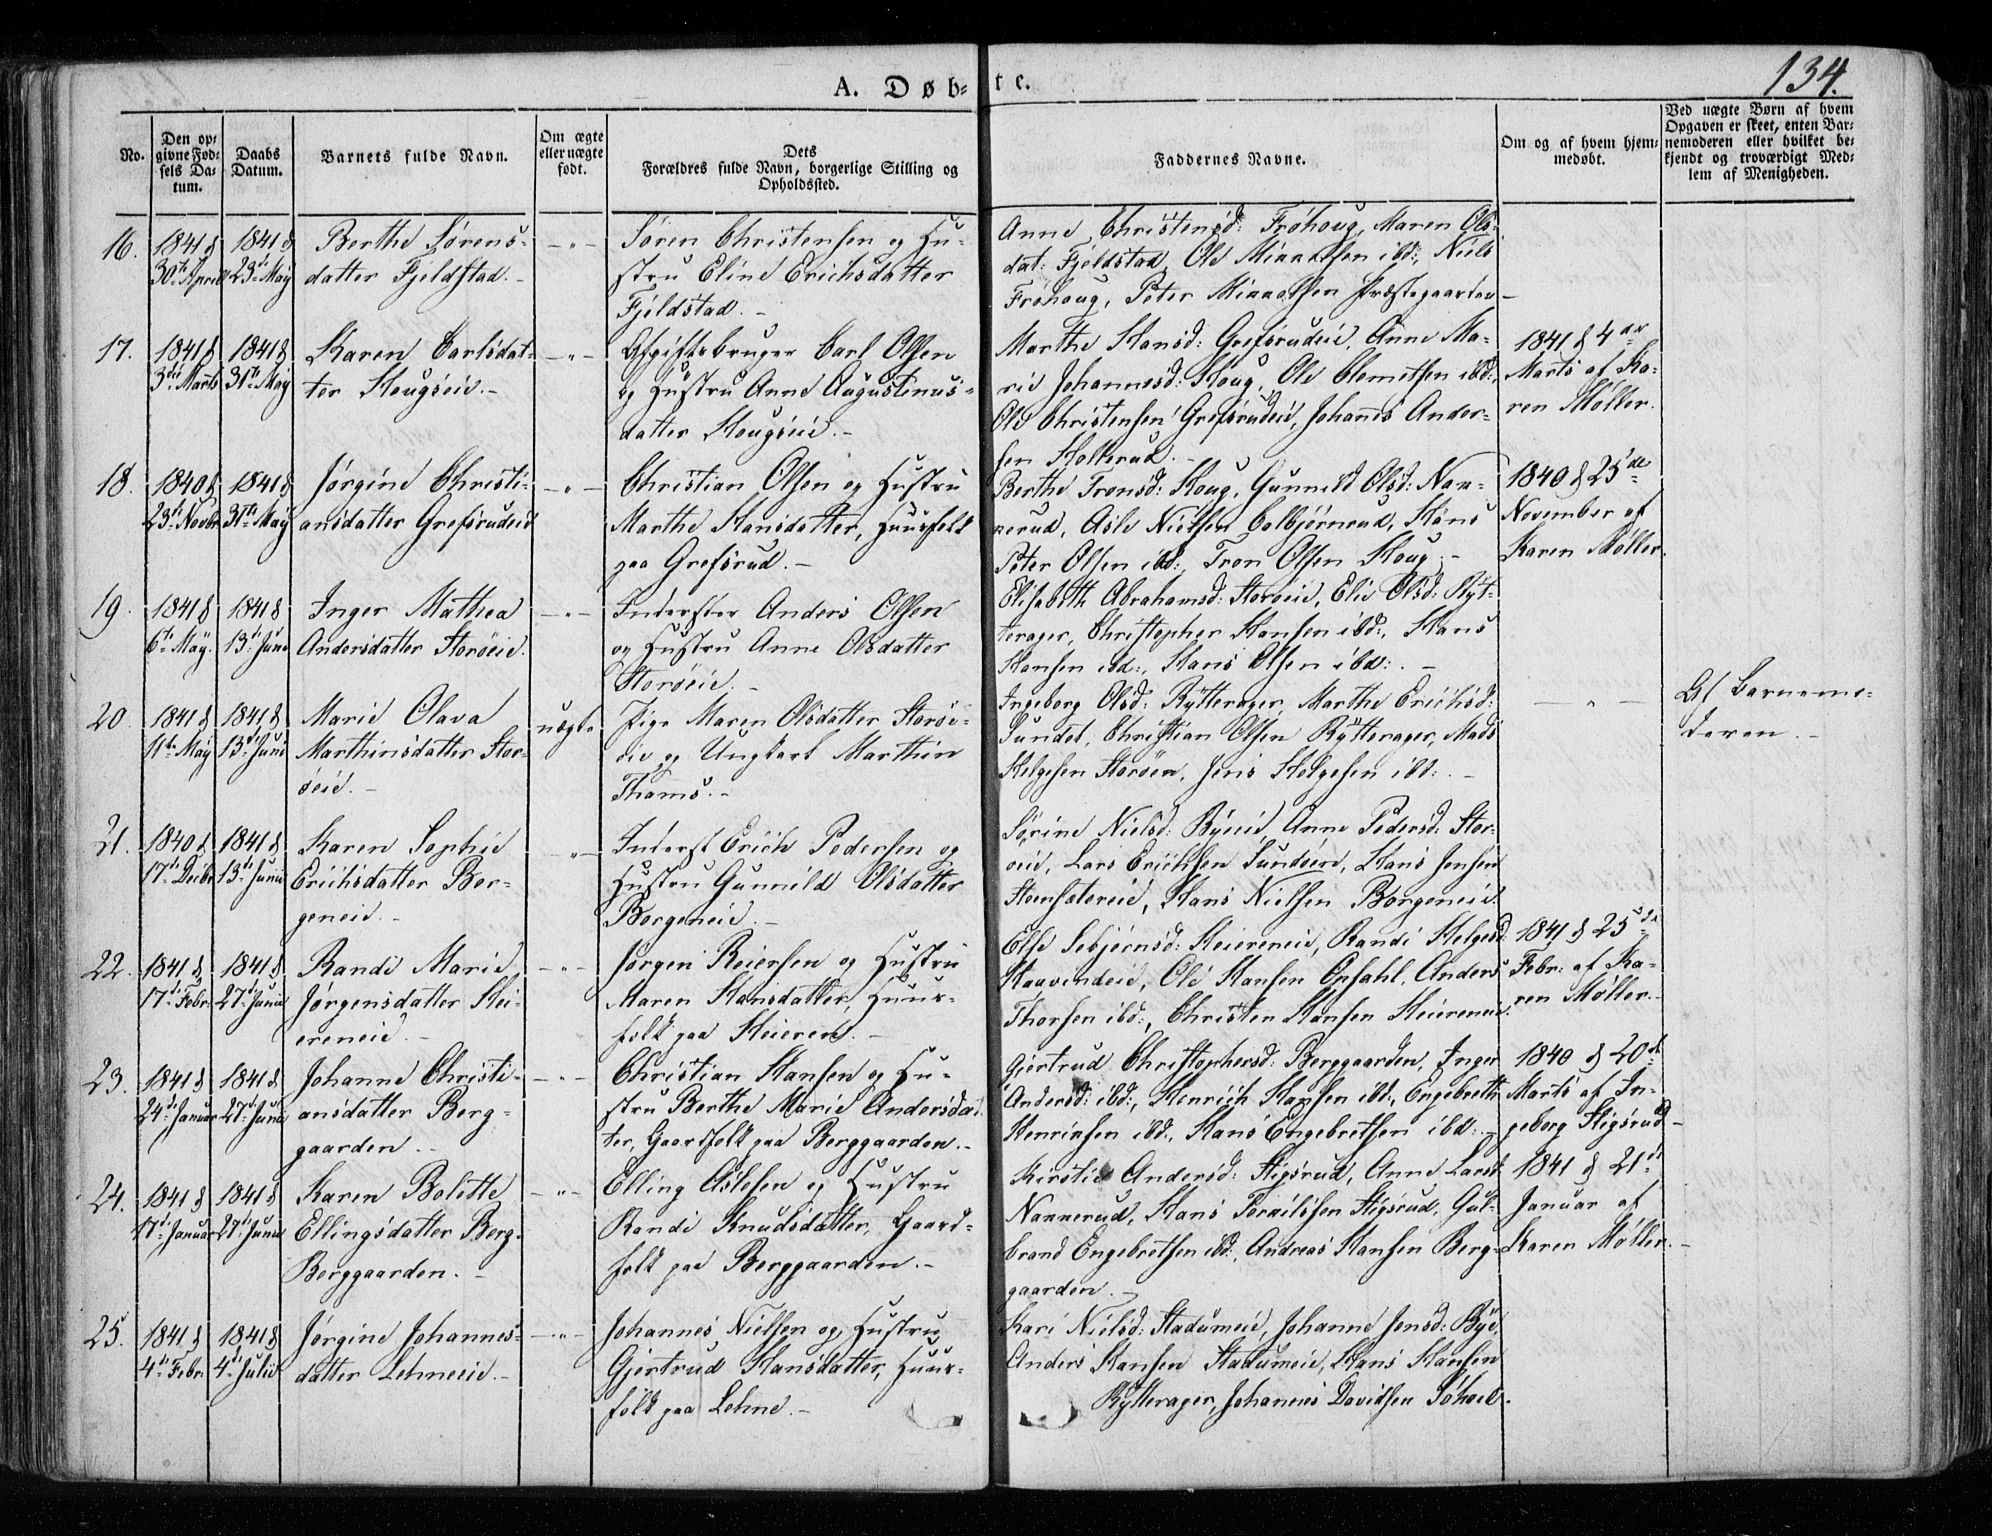 134.
A. Døb-te.
No.
Den op-
givne Fød-
sels Da-
tum.
Daabs
Datum.
Barnets fulde Navn.
Om ægte
eller uægte
født.
Dets
Forældres fulde Navn, borgerlige Stilling og
Opholdssted.
Faddernes Navne.
Om og af hvem hjem-
medøbt.
Ved uægte Børn af hvem
Opgaven er skeet, enten Bar-
nemoderen eller hvilket be-
kjendt og troværdigt Med-
lem af Menigheden.
16.
1841 d
30te April
1841 d
23de May
Berthe Sørens-
datter Fjeldstad.-
Søren Christensen og Hu-
stru Eline Erichsdatter
Fjeldstad.-
Anne Christensd: Frøhoug, Maren Ols-
dat: Fjeldstad, Ole ibd:, Niels
Frøhoug, Peter Præstegaarden
17.
1841 d
3die Marts
1841 d
31te May
Karen Carlsdat-
ter Hougseie.-
Afgiftsbruger Carl Olsen
og Hustru Anne Augustinus-
datter Hougseie.-
Marthe Hansd: Grefsrudeie, Anne Ma-
rie Johannesd: Houg, Ole Clemetsen ibd:,
Ole Christensen Grefsrudeie, Johannes Ander-
sen Hollerud.-
1841 d 4de
Marts af Ka-
ren Møller.
18.
1840 d
23de Novbr
1841 d
31te May
Jørgine Christi-
ansdatter Grefsrudeie
Christian Olsen og Hustru
Marthe Hansdatter, Huusfolk
paa Grefsrud.-
Berthe Tronsd: Houg, Gunnild Olsd: Nan-
nerud, Asle Nielsen Colbjørnrud, Hans
Peter Olsen ibd:, Tron Olsen Houg.-
1840 d 25de
November af
Karen Møller.
19.
1841 d
6te May.
1841 d
13de Juni
Inger Mathea
Andersdatter Storøeie.
Inderster Anders Olsen
og Hustru Anne Olsdatter
Storøeie.-
Elisabeth Abrahamsd: Storøeie, Elie Olsd: Ryt-
terager, Christopher Hansen ibd:, Hans
Hansen ibd:, Hans Olsen ibd:.-
20.
1841 d
11te May
1841 d
13de Juni
Marie Olava
Marthinsdatter Stor-
øeie.-
uægte
Pige Maren Olsdatter Storø-
eie og Ungkarl Marthin
Thoms.-
Ingeborg Olsd: Rytterager, Marthe Erichsd:
Sundet, Christian Olsen Rytterager, Mads
Helgesen Storøen, Jens Helgesen ibd:.-
Af Barnemo-
deren.-
21.
1840 d
17de Decbr
1841 d
13de Juni
Karen Sophie
Erichsdatter Bor-
geneie.-
Inderst Erich Pedersen og
Hustru Gunnild Olsdatter
Borgeneie.-
Sørine Nielsd: Byeeie, Anne Pedersd: Stor-
øeie, Lars Erichsen Sundøen, Hans Jensen
Steensætereie, Hans Nielsen Borgeneie.
22.
1841 d
17de Febr.
1841 d
27de Juni
Randi Marie
Jørgensdatter Hei-
ereneie.-
Jørgen Reiersen og Hustru
Maren Hansdatter, Huus-
folk paa Heieren.-
Else Sebjørnsd: Heiereneie, Randi Helgesd:
Haavindeie, Ole Hansen Opsahl, Anders
Thorsen ibd:, Christen Hansen Heiereneie.
1841 d 25de
Febr: af Ka-
ren Møller.-
23.
1841 d
24de Januar
1841 d
27de Juni
Johanne Christi-
ansdatter Berg-
gaarden.-
Christian Hansen og Hu-
stru Berthe Marie Andersdat-
ter, Gaardfolk paa Berggaarden.-
Gjertrud Christophersd: Berggaarden, Inger
Andersd: ibd:, Henrich Hansen ibd:, Engebreth
Henrichsen ibd:, Hans Engebrethsen ibd:.-
1840 d 20de
Marts af In-
geborg Stigsrud-
24.
1841 d
17de Januar
1841 d
27de Juni
Karen Bolette
Ellingsdatter Berg-
Berggaarden.-
Elling Aslesen og Hustru
Randi Knudsdatter, Gaard-
folk paa Berggaarden.-
Kirstie Andersd: Stigsrud, Anne Larsd:
Nannerud, Hans Stigsrud, Gul-
brand Engebrethsen ibd:, Andreas Hansen Berg-
gaarden.-
1841 d 21de
Januar af
Karen Møller.-
25.
1841 d
4de Febr.
1841 d
4de Julii
Jørgine Johannes-
datter Lehneeie.-
Johannes Nielsen og Hustru
Gjertrud Hansdatter, Huus-
folk paa Lehne.-
Kari Nielsd: Stadumeie, Johanne Jensd: Bye,
Anders Hansen Stadumeie, Hans Hansen
Rytterager, Johannes Davidsen